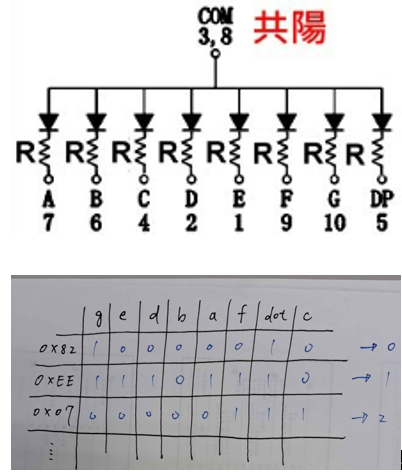 COM
3,8 共陽
R R R R R R R R
A B C D E F G DP
7 6 4 2 1 9 10 5
g e d b a f dot c
0x82 1 0 0 0 0 0 1 0 → 0
0xEE 1 1 1 0 1 1 1 0 → 1
0x07 0 0 0 0 0 1 1 1 → 2
⋮